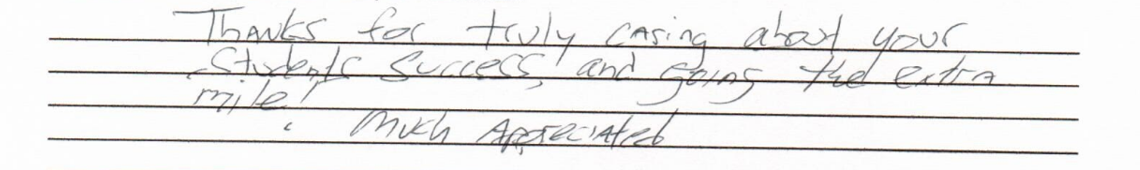 Thanks for truly caring about your
Students Success, and going the extra
mile!
Much Appreciated